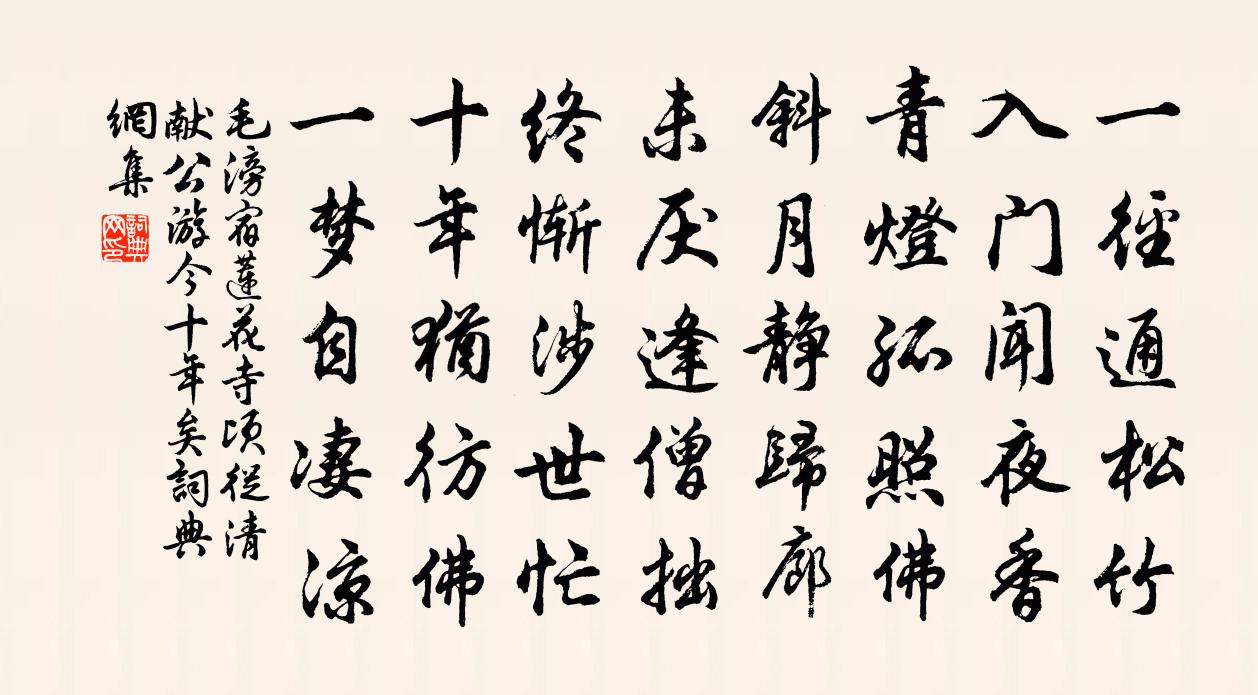 一徑通松竹
入门闻夜香
青燈孤照佛
斜月静歸廊
未厌逢僧拙
终慚涉世忙
十年猶彷佛
一梦自凄凉
毛滂宿蓮花寺顷從清
献公游今十年矣詞典
網集
詞典網印